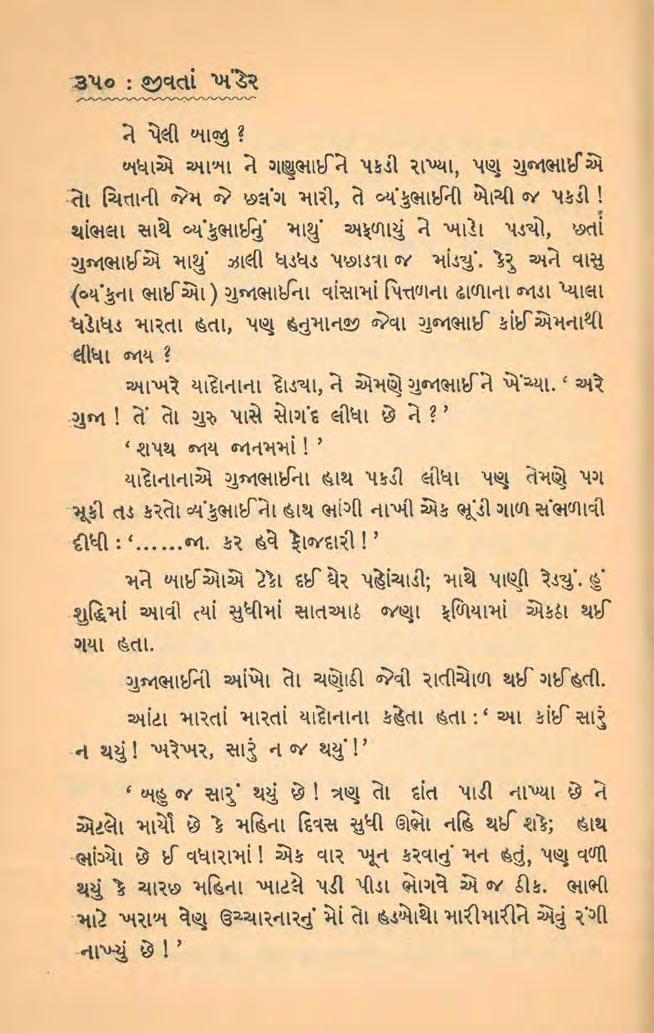 ૩૫૦ : જીવતાં ખંડેર
ને પેલી બાજુ ?
બધાએ આબા ને ગણુભાઈને પકડી રાખ્યા, પણ ગુજાભાઈએ
તો ચિત્તાની જેમ જે છલંગ મારી, તે વ્યંકુભાઈની બોચી જ પકડી !
થાંભલા સાથે વ્યંકુભાઈનું માથું અફળાયું ને ખાડો પડયો, છતાં
ગુજાભાઈએ માથું ઝાલી ધડધડ પછાડવા જ માંડયું. કેરુ અને વાસુ
(વ્યંકુના ભાઈઓ ) ગુજાભાઈના વાંસામાં પિત્તળના ઢાળાના જાડા પ્યાલા
ધડોધડ મારતા હતા, પણ હનુમાનજી જેવા ગુજાભાઈ કાંઈ એમનાથી
લીધા જાય ?
આખરે યાદોનાના દોડયા, ને એમણે ગુજાભાઈને ખેંચ્યા. ‘ અરે
ગુજા ! તેં તો ગુરુ પાસે સોગંદ લીધા છે ને ?’
‘ શપથ જાય જાનમમાં ! ’
યાદોનાનાએ ગુજાભાઈના હાથ પકડી લીધા પણ તેમણે પગ
મૂકી તડ કરતો વ્યંકુભાઈનો હાથ ભાંગી નાખી એક ભૂંડી ગાળ સંભળાવી
દીધી : ‘......જા. કર હવે ફોજદારી ! ’
મને બાઈઓએ ટેકો દઈ ઘેર પહોંચાડી; માથે પાણી રેડયું. હું
શુદ્ધિમાં આવી ત્યાં સુધીમાં સાતઆઠ જણા ફળિયામાં એકઠા થઈ
ગયા હતા.
ગુજાભાઈની આંખો તો ચણોઠી જેવી રાતીચોળ થઈ ગઈ હતી.
આંટા મારતાં મારતાં યાદોનાના કહેતા હતા : ‘ આ કાંઈ સારું
ન થયું ! ખરેખર, સારું ન જ થયું !’
‘ બહુ જ સારું થયું છે ! ત્રણ તો દાંત પાડી નાખ્યા છે ને
એટલો માર્યો છે કે મહિના દિવસ સુધી ઊભો નહિ થઈ શકે; હાથ
ભાંગ્યો છે ઈ વધારામાં ! એક વાર ખૂન કરવાનું મન હતું, પણ વળી
થયું કે ચારછ મહિના ખાટલે પડી પીડા ભોગવે એ જ ઠીક. ભાભી
માટે ખરાબ વેણ ઉચ્ચારનારનું મોં તો હડબોથો મારીમારીને એવું રંગી
નાખ્યું છે ! ’